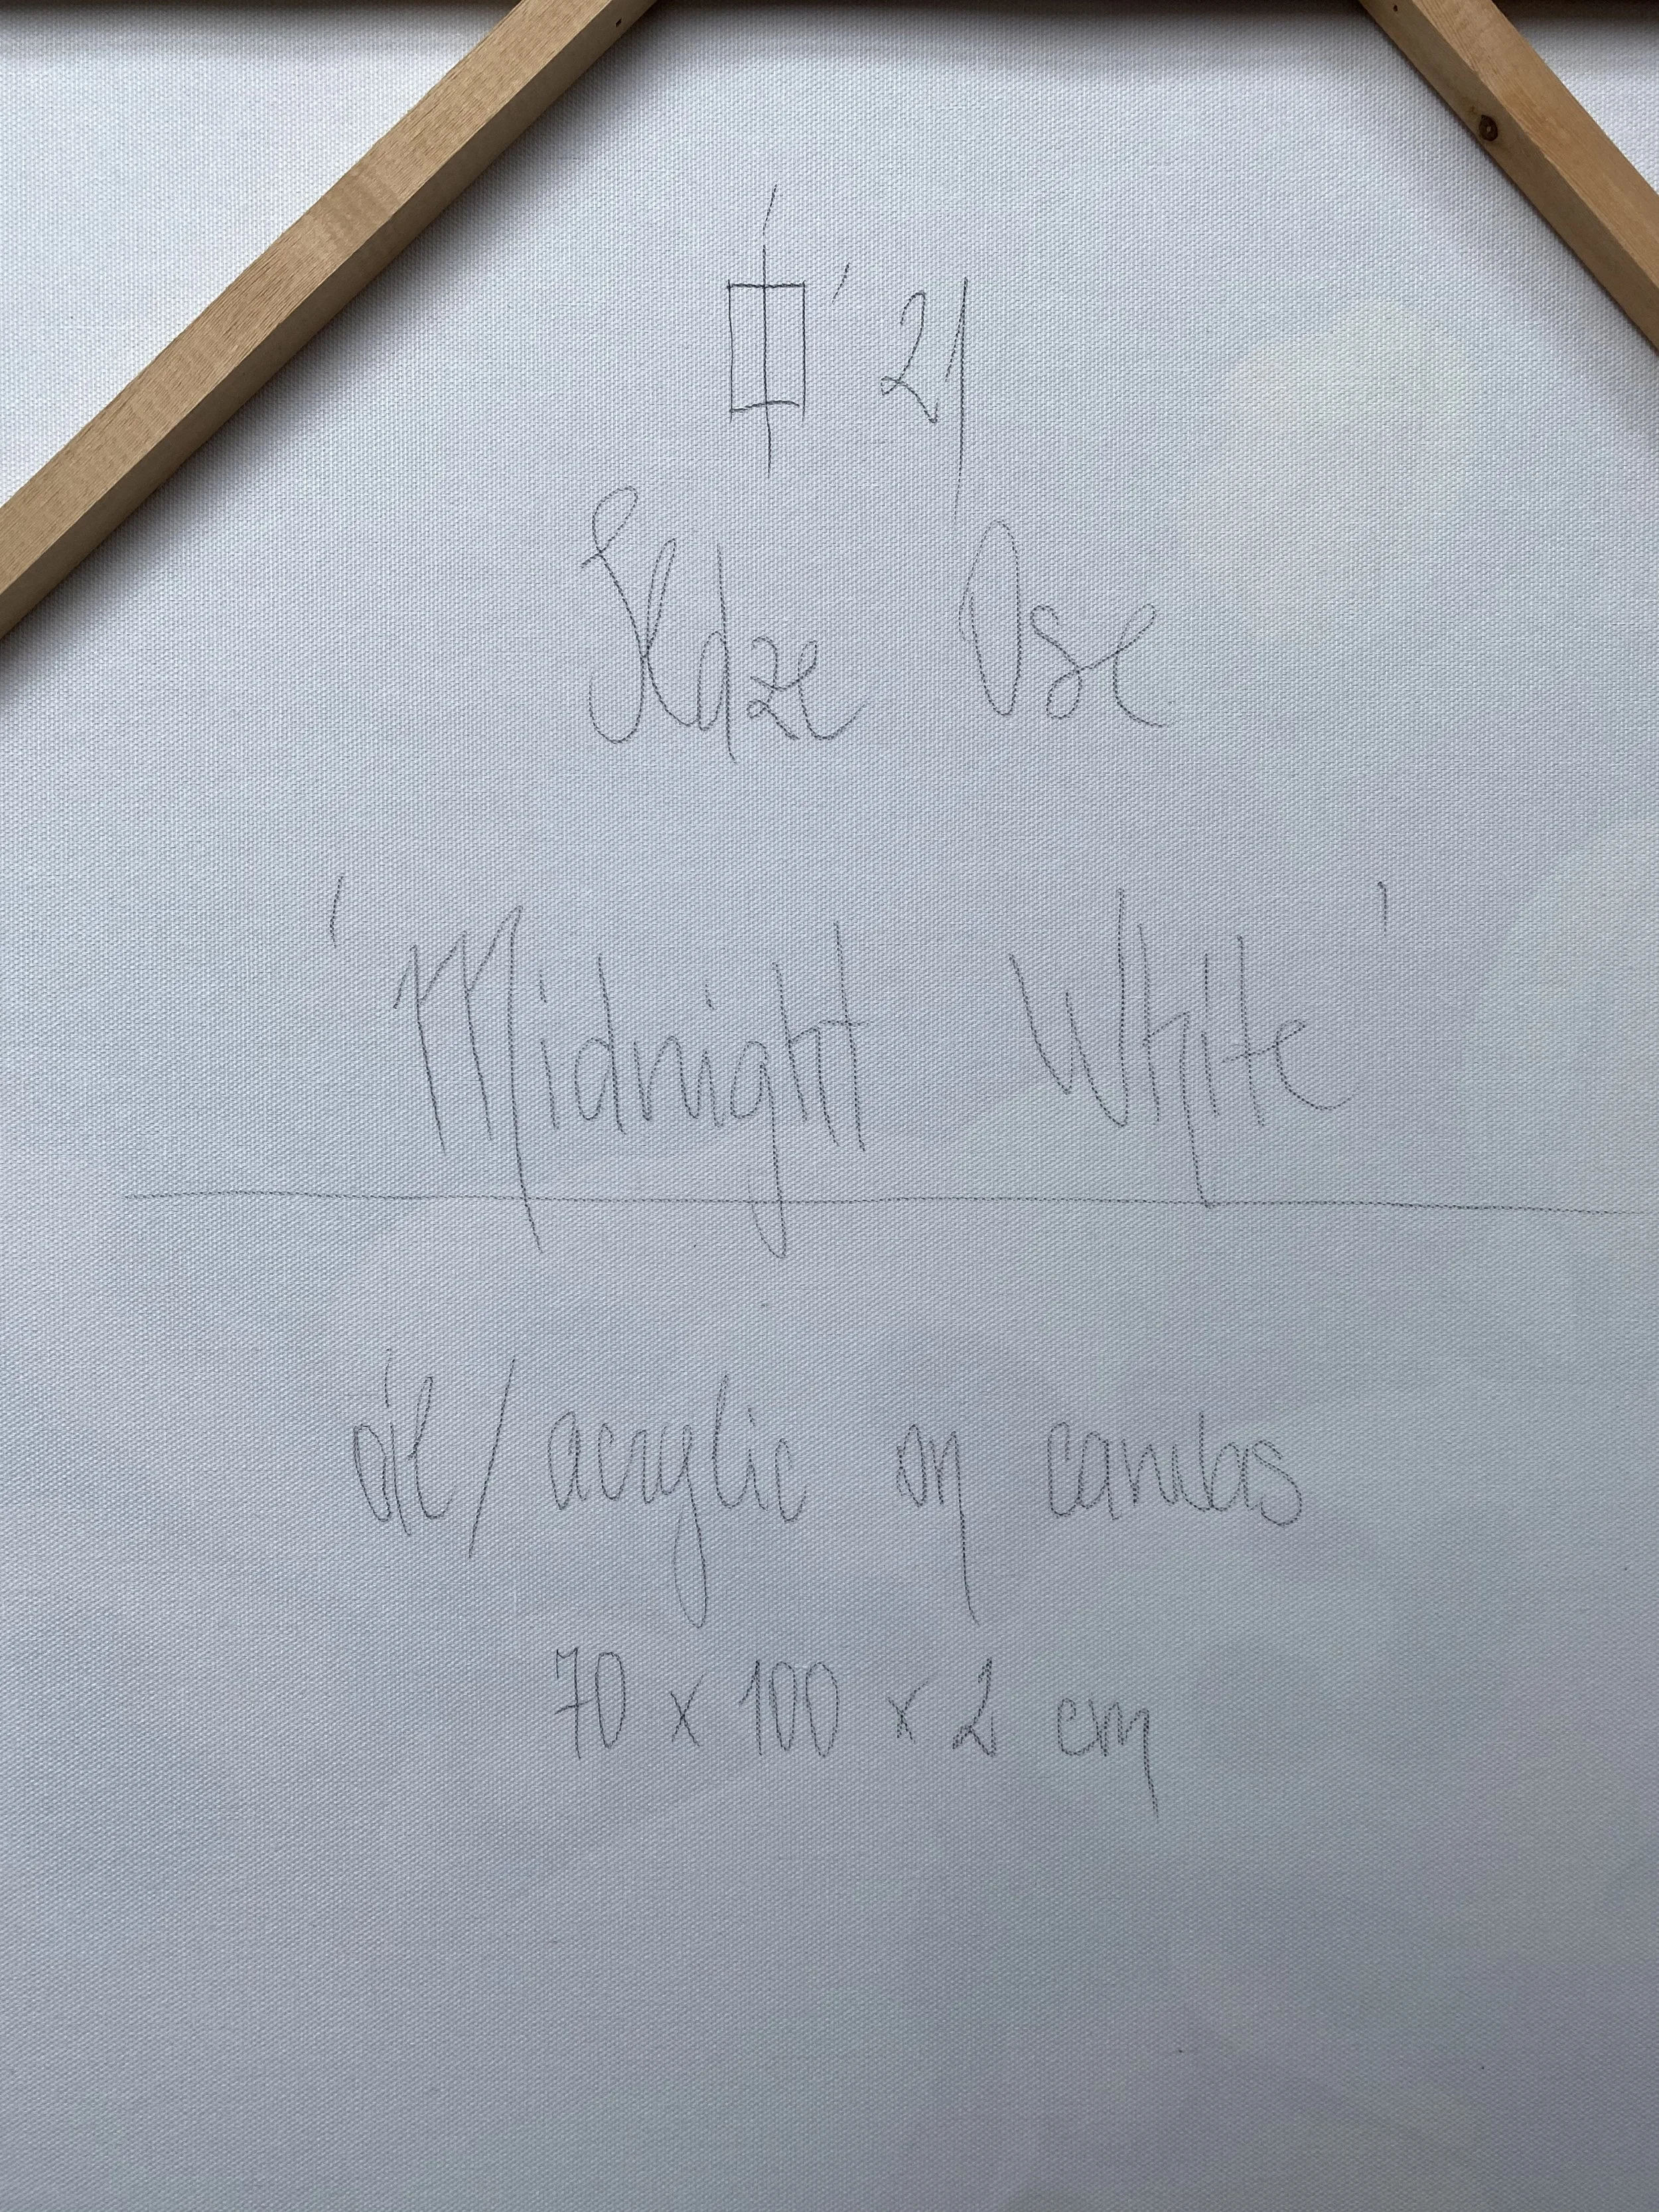 '21
Ildze Ose
'Midnight White'
oil/ acrylic on canvas
70 x 100 x 2 cm